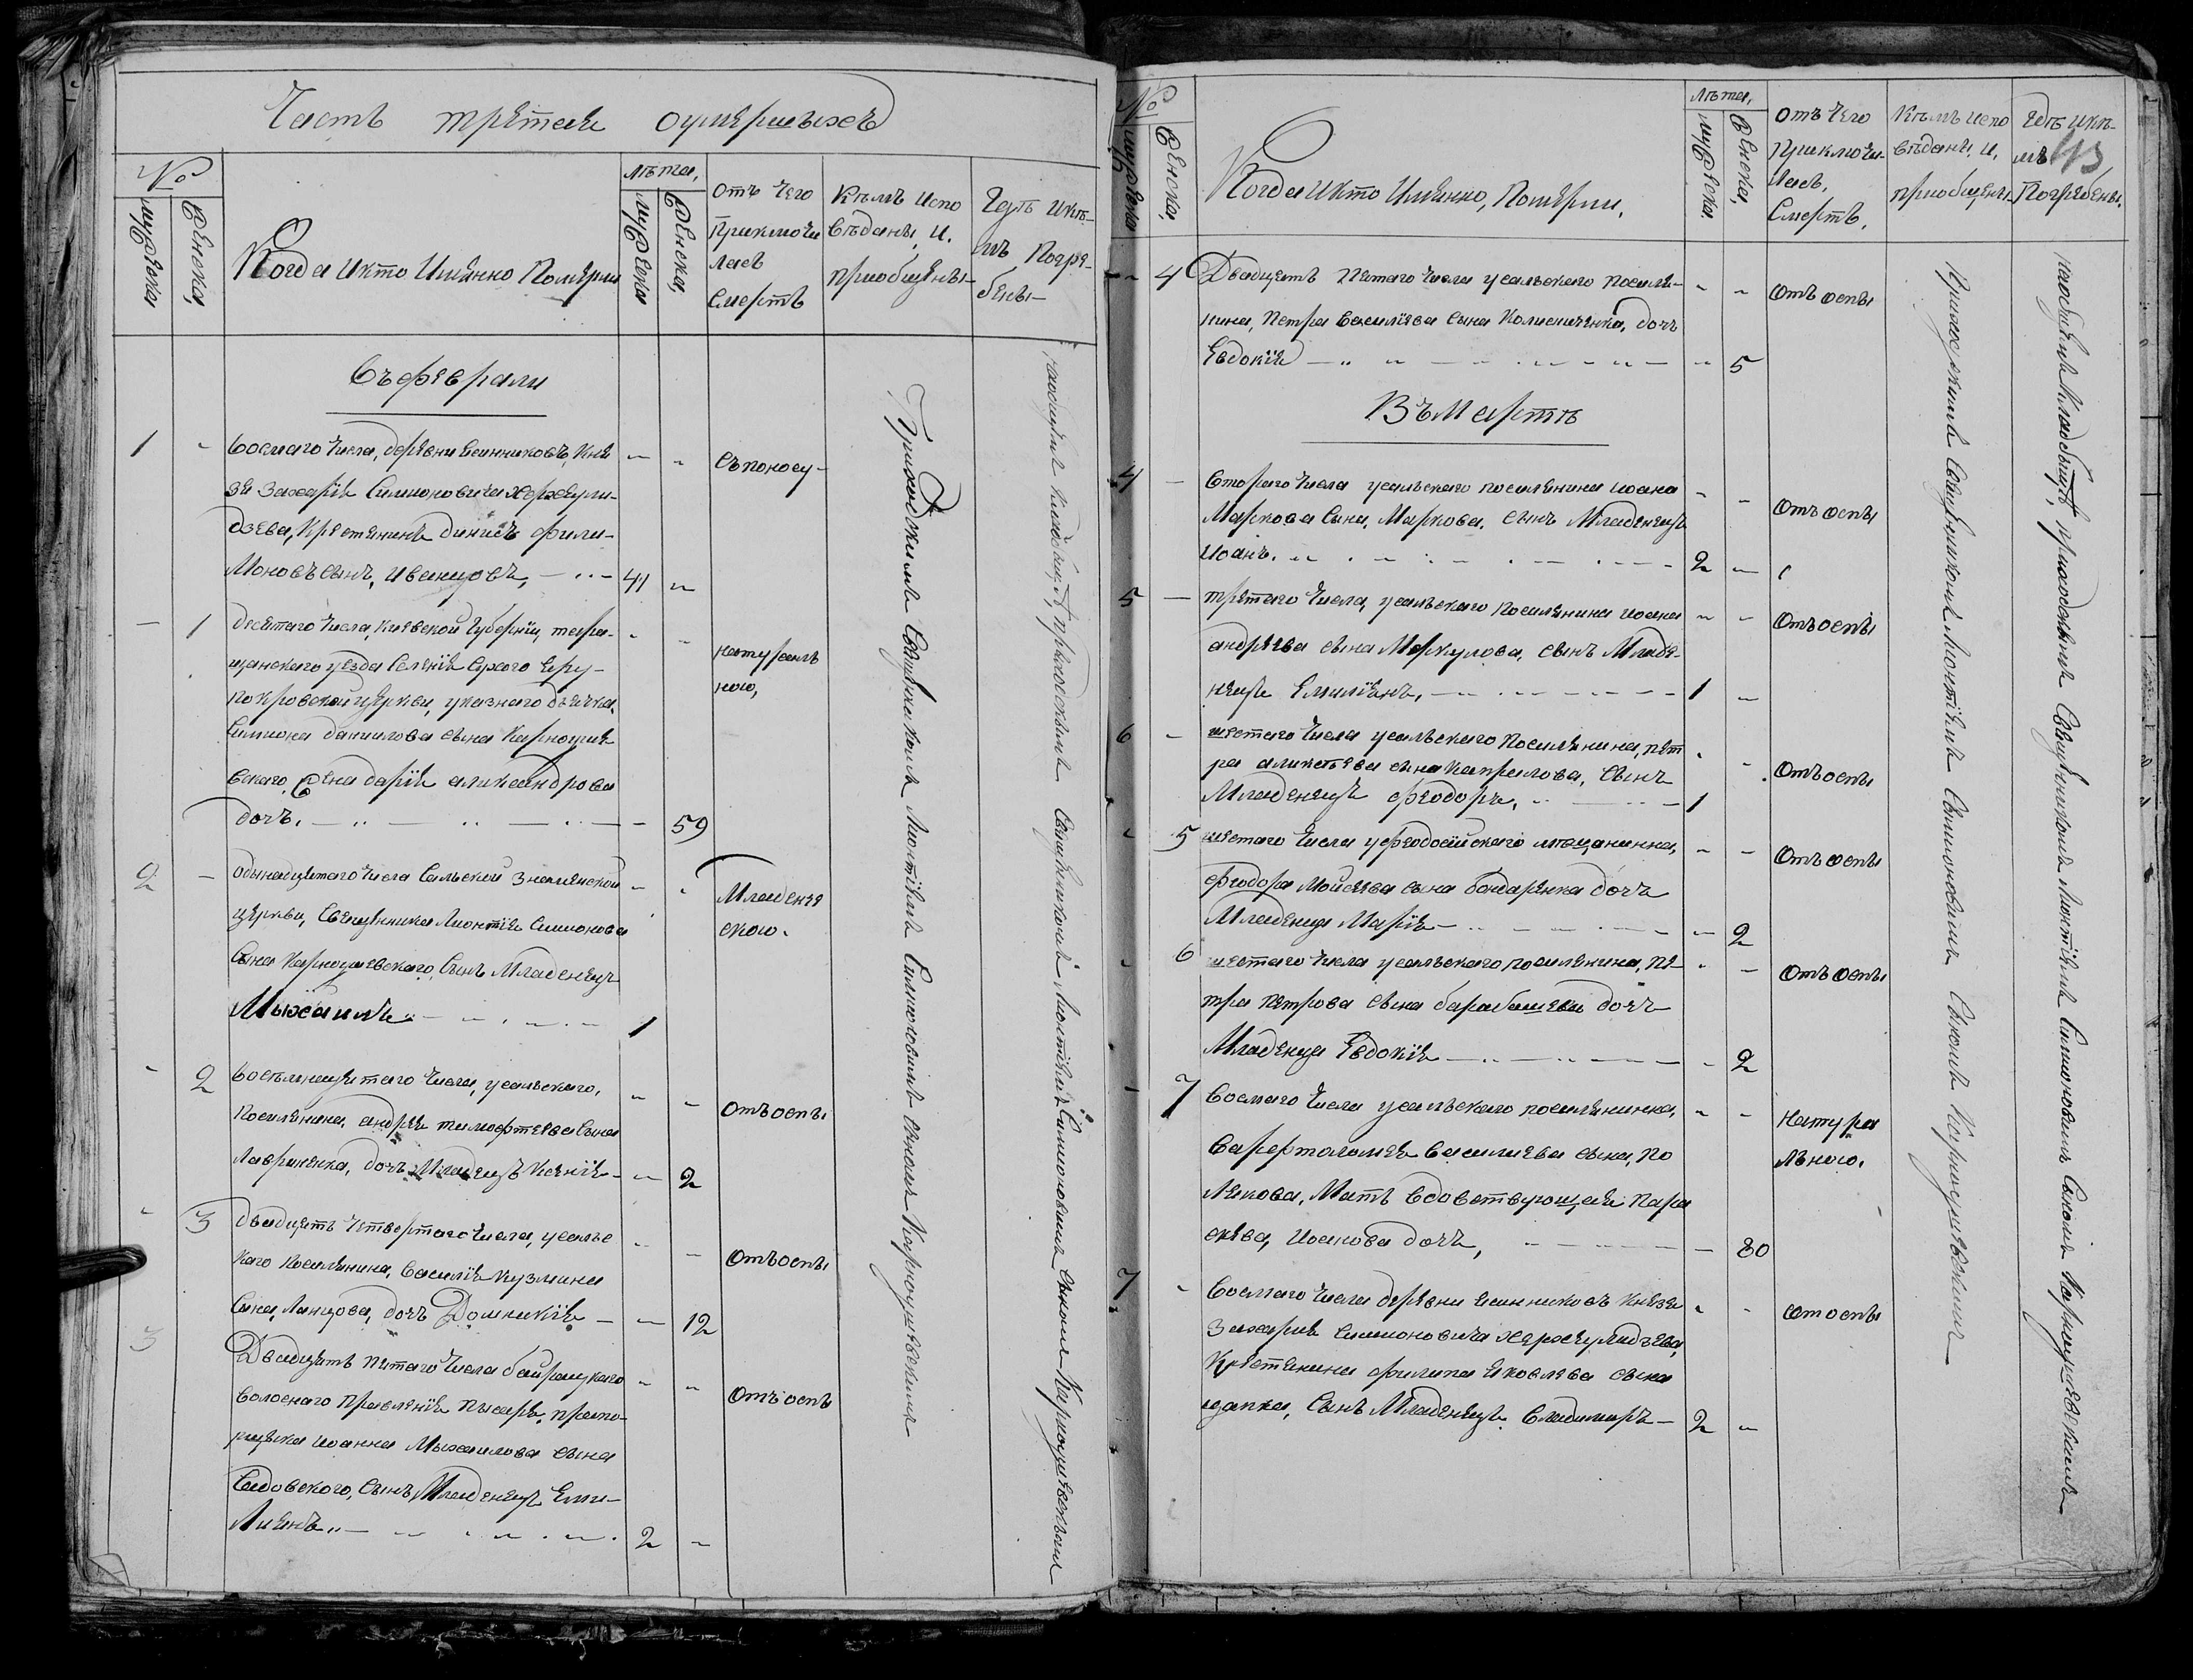 Часть третая о умершыхъ
№
мужеска
женска,
Когда и кто имянно помярли
лѣта,
мужеска
женска,
Отъ чего
приключи
лась
смерть
Кѣмъ испо
вѣданы, и,
приобщены
Гдѣ и кѣ-
мъ погре-
бены
Въ феврали
1 - восмаго числа, деревни Ясинниковъ, Кня
зя Захарія Симионовича Хержеули-
дзева, крестянинъ Динисъ Фили-
моновъ сынъ, Иванцовъ, 41 -
съ поносу
- 1 десятаго числа, Киевской Губерніи, тара-
щанского уезда селенія Сухого Яру-
покровской церкви, указного дьячка,
Симиона Данилова сына Карноуше
вского, жена Дарія Александрова
дочъ. - 59
натураль
ного,
2 - одынадцятаго числа Сальской Знаменской
церкви, священника Лионтія Симионова
сына Карноушевского, сынъ младенецъ
Мыхаилъ 1
Младенче
ского.
- 2 восѣмнадцятаго числа, усальского,
поселянина, Андрея Тимофтеева сына
Лавриненка, дочъ младенецъ Ксенія - 2
Отъ оспы
- 3 двадцять четвертаго числа, усальс
кого поселянина, Василія Кузмина
сына, Ланцова, дочъ Домникія - 12
Отъ оспы
3 Двадцять пятаго числа байрацкого
волосного правленія писаря, прапо-
рщика Иоанна Мыхаилова сына
Садовского, сынъ младенецъ Еми-
лиянъ 2 -
Отъ оспы
Прихоцкимъ Священикомъ Лионтіемъ Симионовимъ сыномъ Карноушевскимъ
№
мужеска
женска,
Когда и кто имянно, помярли,
лѣта,
мужеска
женска,
Отъ чего
приключи-
лась,
смерть,
Кѣмъ испо
вѣданы, и,
приобщены
Гдѣ и кѣ-
мъ
погребены.
- 4 Двадцять пятаго числа усальского поселя-
нина, Петра Василіева сына Колисниченка, дочъ
Евдокія - 5
Отъ оспы
Въ Мартѣ
4 - второго числа усальского поселянина Иоана
Маркова сына, Маркова, сынъ младенецъ
Иоанъ. 2 -
Отъ оспы
5 - третаго числа, усальского поселянина Иоана
Андреева сына Меркулова, сынъ младе-
нецъ Емиліянъ, 1 -
Отъ оспы
6 - шестаго числа усальского поселянина, Пет
ра Аликсѣева сына Капралова, сынъ
младенецъ Феодоръ, 1
Отъ оспы
- 5 шестаго числа у феодосійского мѣщанинна,
Феодора Мойсеева сына Бондаренка дочъ
младенца Марія - 2
Отъ оспы
- 6 шестаго числа усальского поселянина, Пе-
тра Петрова сына Барабашева дочъ
младенца Евдокія - 2
Отъ оспы
- 7 восмаго числа усальского поселянинна,
Варфтоломея Василиева сына, По
лякова, мать вдовствующая Пара
скева, Иоанова дочъ, - 80
натура
льного.
7 - восмаго числа деревни Ясинниковъ Князя
Захарія Симионовича Хержеулидзева,
крестянина Филипа Яковлева сына
Цапка, сынъ младенецъ Владимиръ 2 -
от оспы
Приходскимъ Священикомъ Лионтіемъ Симионовимъ сыномъ Карноушевскимъ